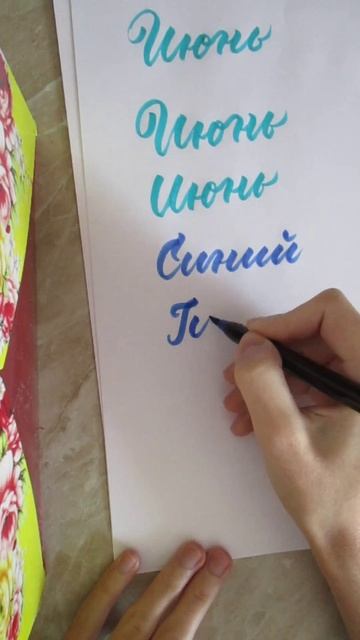 Июнь
Июнь
Июнь
Синий